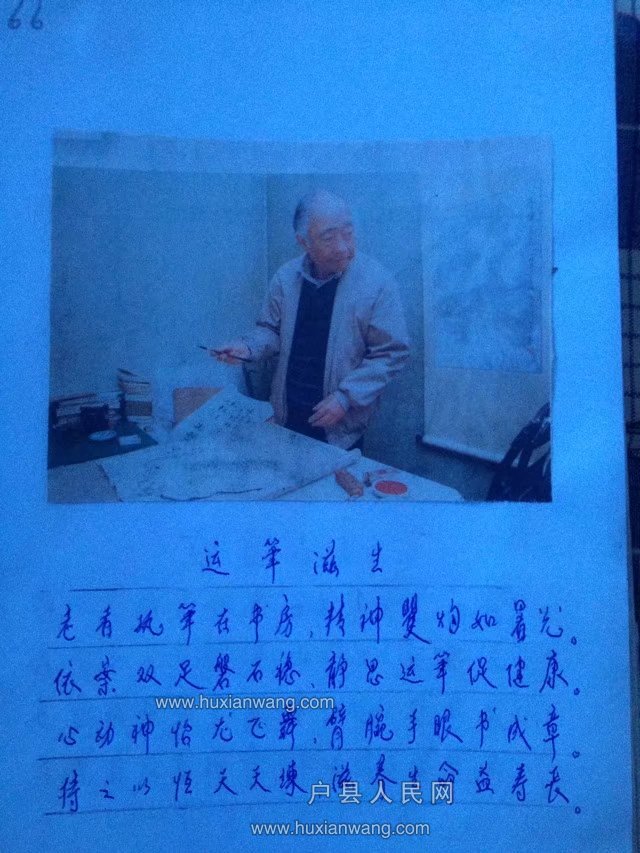 66
运笔滋生
老者执笔在书房，精神矍灼如暑光。
依案双足磐石稳，静思运笔促健康。
www.huxianwang.com
心动神怡龙飞舞，臂腕手眼书成章。
持之以恒天天练，滋养生命益寿长。
户县人民网
www.huxianwang.com